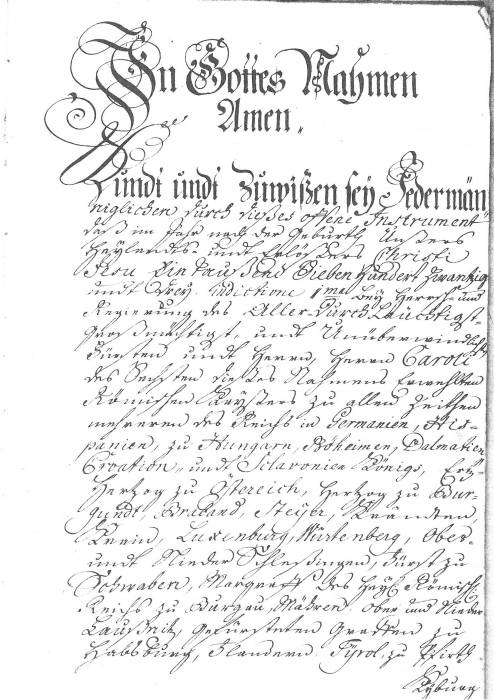 In Gottes Nahmen
Amen.
Kundt undt Zuwißen sey Jedermän
niglichen durch dießes offene Instrument
daß im Jahr nach der Geburth Unßers
Heylandes undt Erlößers Christi
Jesu Ein Tausend Sieben Hundert Zwantzig
undt Drey. Indictione 1ma bey Herrsch- und
Regierung des Aller Durchlauchtigst-
Großmächtigst- undt Unüberwindlichst
Fürsten undt Herrn, Herrn Caroli
des Sechsten dießes Nahmens Erwehlten
Römischen Kaysers zu allen Zeithen
mehreren des Reichs in Germanien, His-
panien, zu Hungarn, Böheimen, Dalmatien
Croatien, undt Sclavonien Königs, Ertz-
Hertzog zu Östereich, Hertzog zu Bur-
gundt, Braband, Steyer, Kärndten
Krain, Luxenburg, Würtenberg, Ober-
undt Nieder Schleßingen, Fürst zu
Schwaben, Marggraff des Heyl. Römisch.
Reichs zu Burgau, Mähren Ober und Nieder
Laußnitz, Gefürsteten Graffen zu
Habsburg, Flandern Tyrol zu Pfirth
Kyburg